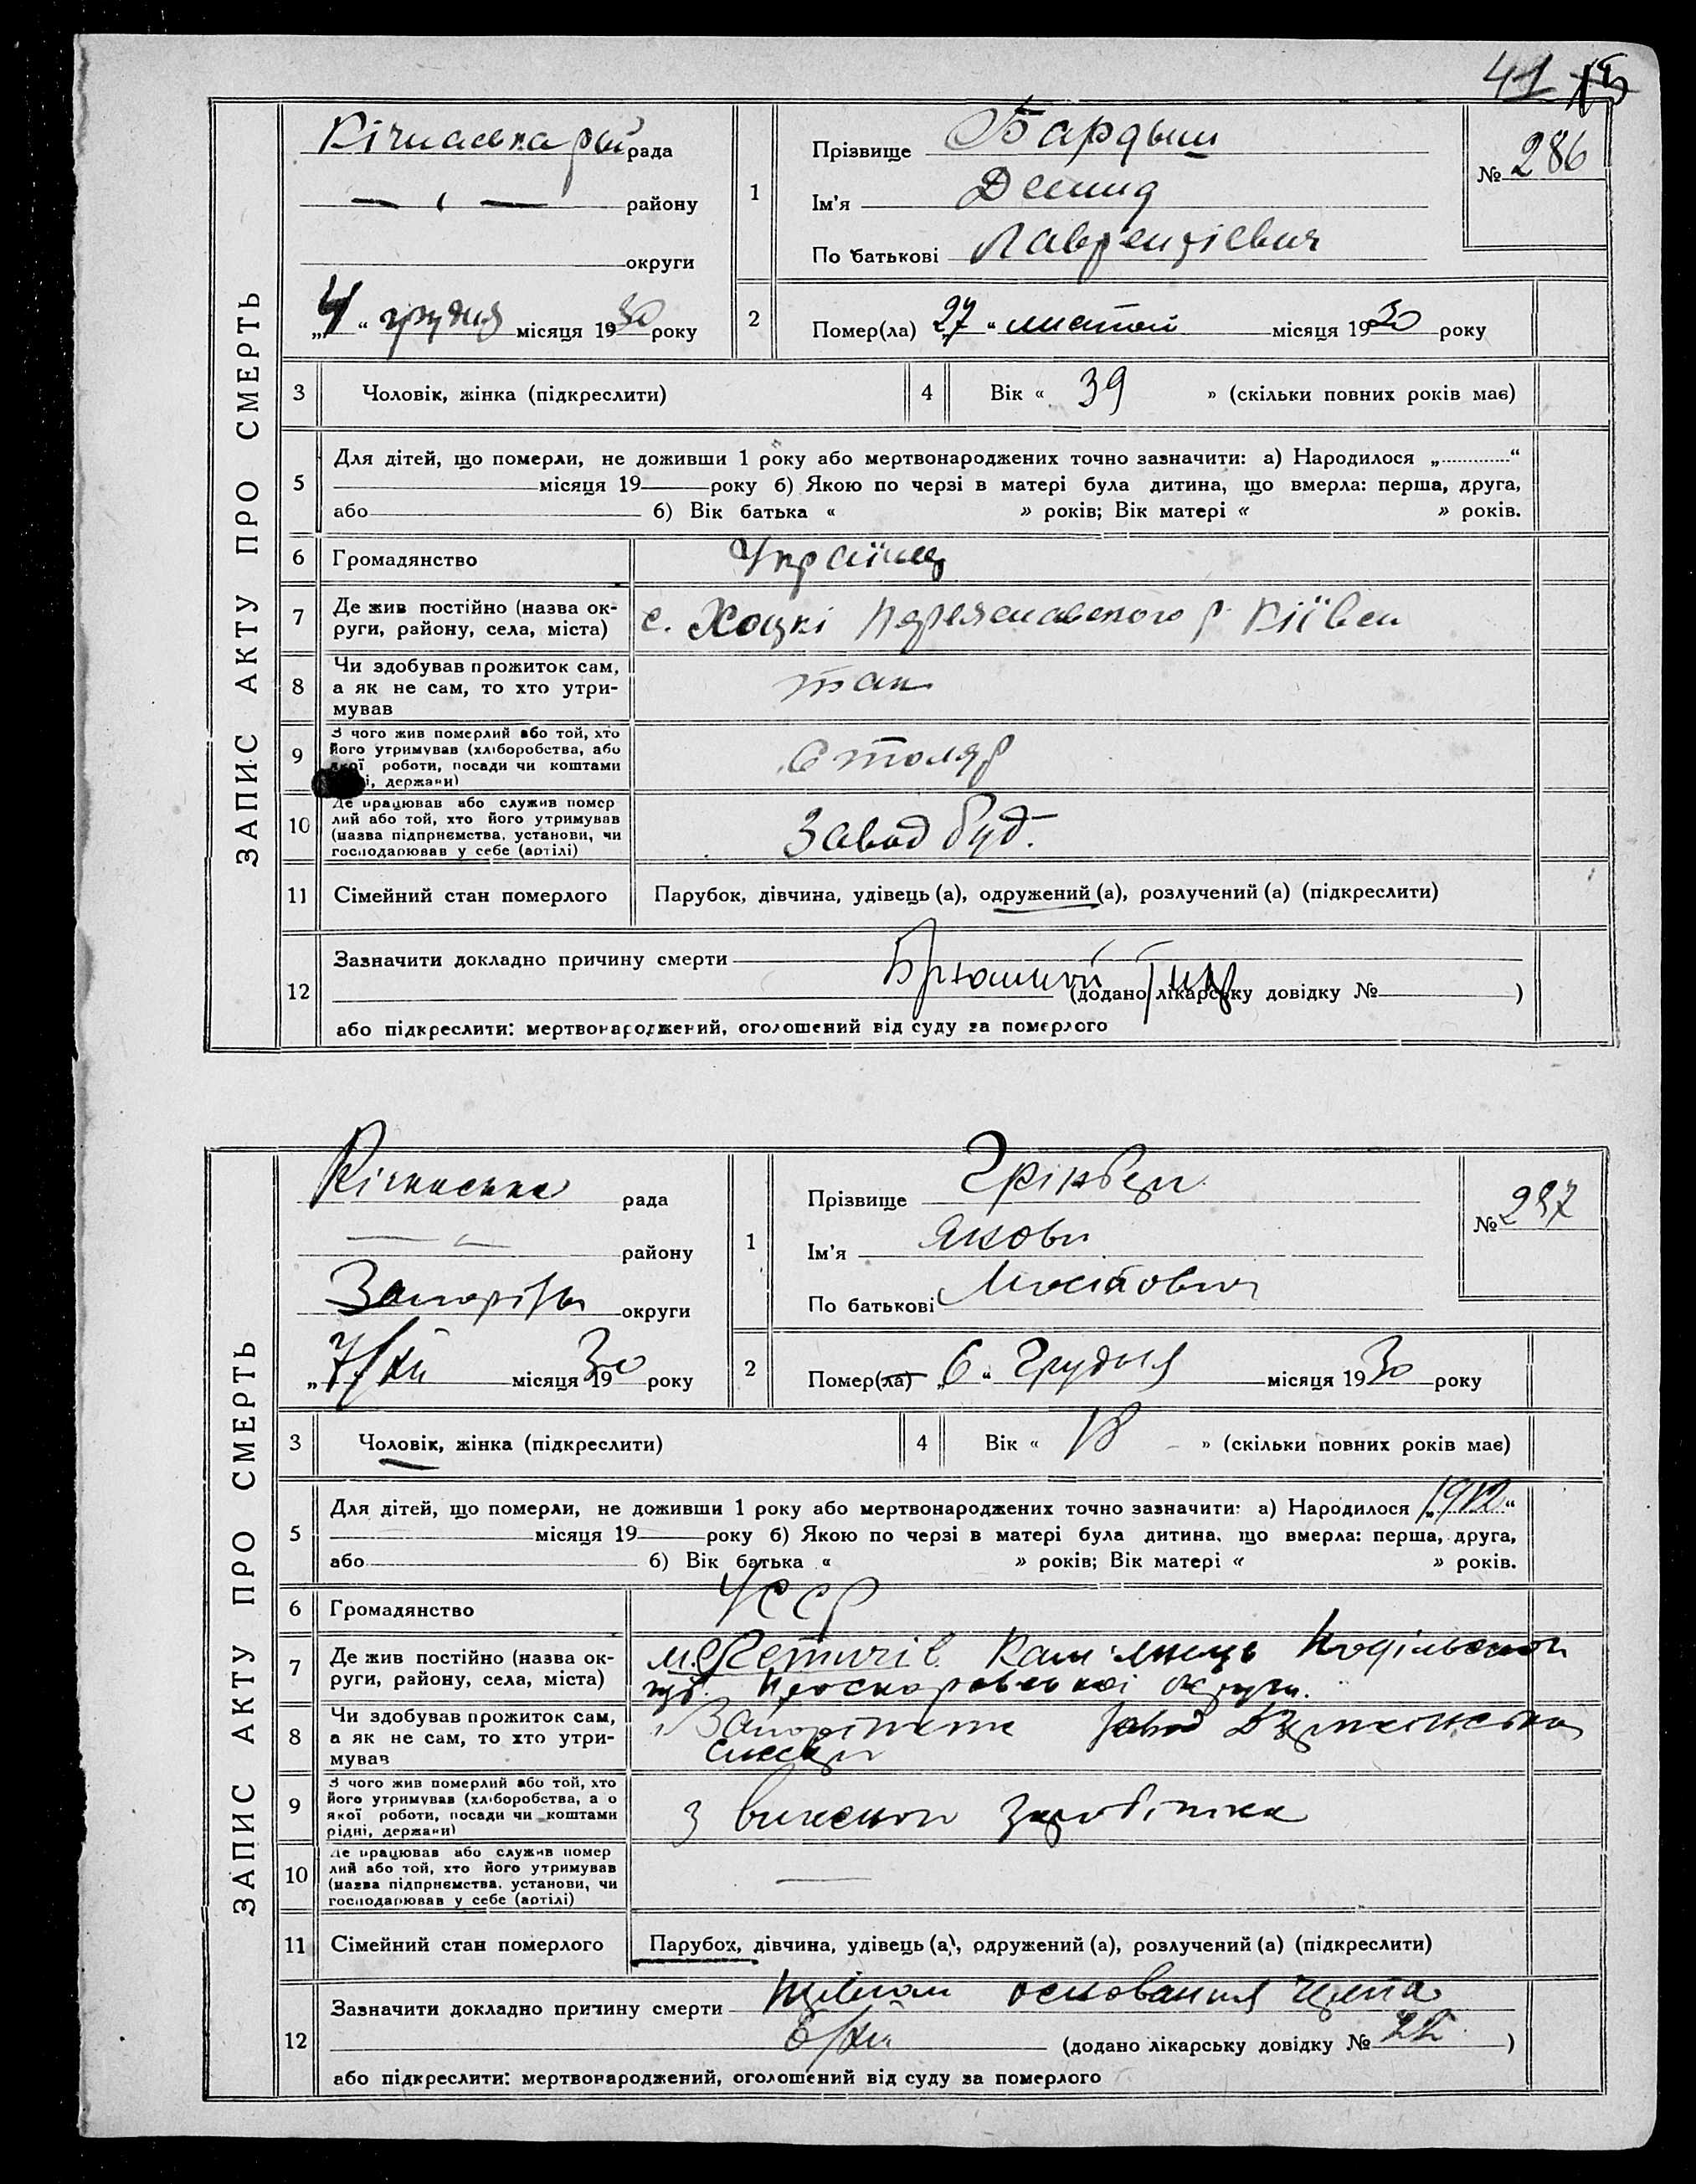 41
ЗАПИС АКТУ ПРО СМЕРТЬ
Кічкаська рада
— „ — району
округи
„4“ грудня місяця 1930 року
1
Прізвище Бардыш
Ім'я Демид
По батькові Лаврентієвич
№ 286
2
Помер(ла) 27 „ листоп місяця 1930 року
3 Чоловік, жінка (підкреслити)
4 Вік « 39 » (скільки повних років має)
5
Для дітей, що померли, не доживши 1 року або мертвонароджених точно зазначити: а) Народилося „ “
місяця 19 року б) Якою по черзі в матері була дитина, що вмерла: перша, друга,
або б) Вік батька « » років; Вік матері « » років.
6 Громадянство Україн
7 Де жив постійно (назва ок-
руги, району, села, міста)
с. Хоцкі Переяславского р. Киівск
8 Чи здобував прожиток сам,
а як не сам, то хто утри-
мував
так
9 З чого жив померлий або той, хто
його утримував (хліборобства, або
якої роботи, посади чи коштами
і, держави)
Столяр
10 Де працював або служив помер
лий або той, хто його утримував
(назва підприємства, установи, чи
господарював у себе (артілі)
Завод буд.
11 Сімейний стан померлого Парубок, дівчина, удівець (а), одружений (а), розлучений (а) (підкреслити)
12
Зазначити докладно причину смерти Брюшной тиф
(додано лікарську довідку № )
або підкреслити: мертвонароджений, оголошений від суду за померлого
ЗАПИС АКТУ ПРО СМЕРТЬ
Кічкаська рада
— „ — району
Запоріжск округи
„7/XII місяця 1930 року
1
Прізвище Грінберг
Ім'я Яков
По батькові
№ 287
2
Помер(ла) „6“ Грудня місяця 1930 року
3 Чоловік, жінка (підкреслити)
4 Вік « 18 » (скільки повних років має)
5
Для дітей, що померли, не доживши 1 року або мертвонароджених точно зазначити: а) Народилося „1912“
місяця 19 року б) Якою по черзі в матері була дитина, що вмерла: перша, друга,
або б) Вік батька « » років; Вік матері « » років.
6 Громадянство УССР
7 Де жив постійно (назва ок-
руги, району, села, міста)
м. Летичів Кам'янець Подільской
губ. Проскоровської округи.
8 Чи здобував прожиток сам,
а як не сам, то хто утри-
мував
завод
9 З чого жив померлий або той, хто
його утримував (хліборобства, а о
якої роботи, посади чи коштами
рідні, держави)
З заробітка
10 Де працював або служив помер
лий або той, хто його утримував
(назва підприємства, установи, чи
господарював у себе (артілі)
—
11 Сімейний стан померлого Парубок, дівчина, удівець (а), одружений (а), розлучений (а) (підкреслити)
12
Зазначити докладно причину смерти основания
6/XII (додано лікарську довідку № )
або підкреслити: мертвонароджений, оголошений від суду за померлого